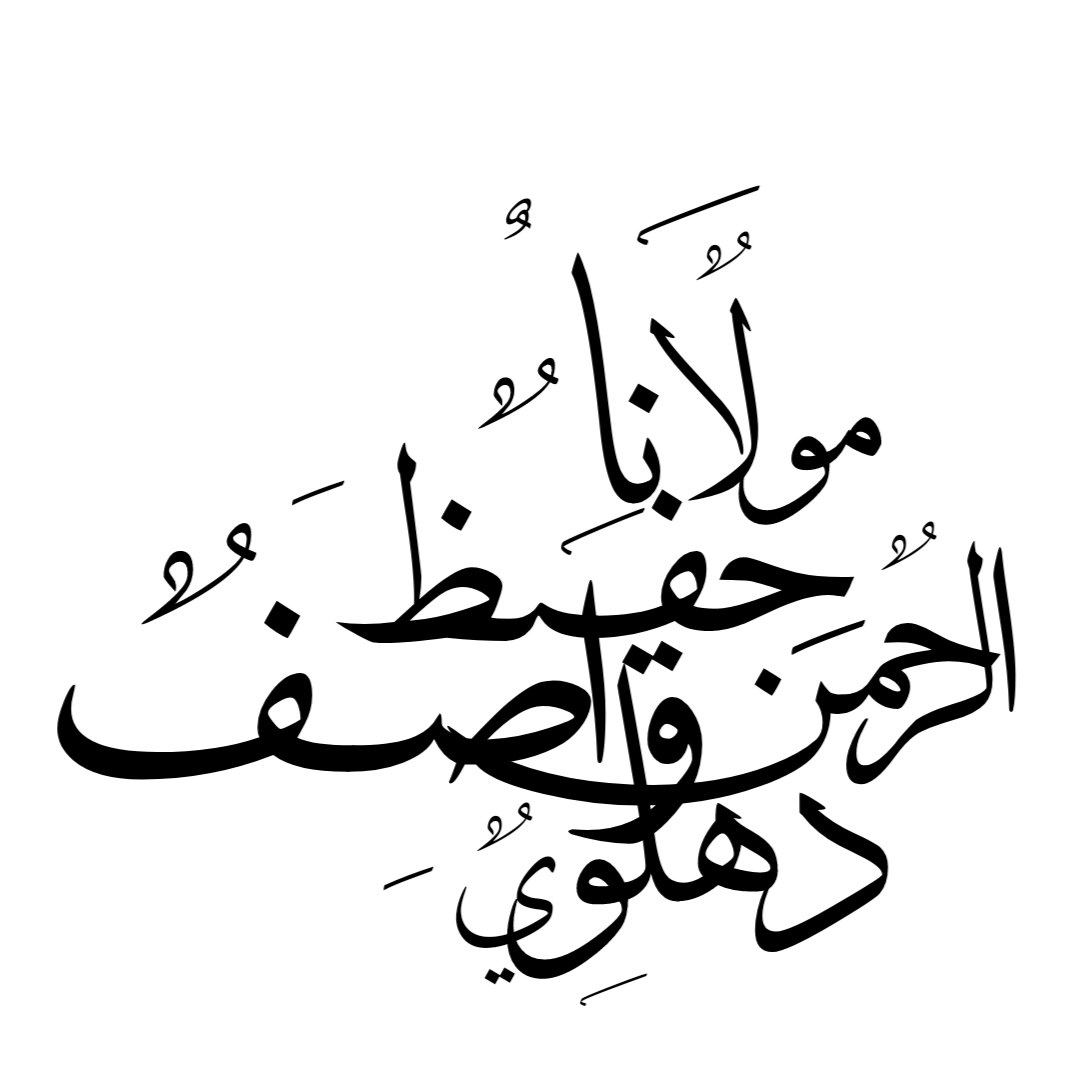 مولانا
حفيظ
الرحمن
واصف
دهلوي